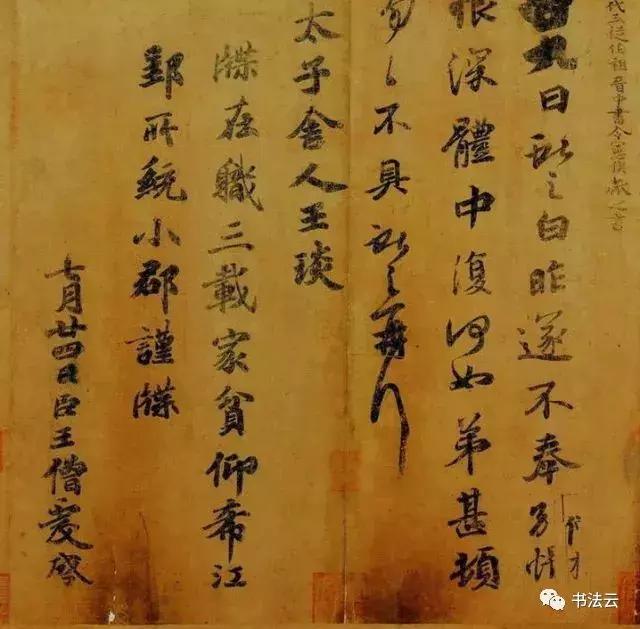 代三從伯祖晉中書令憲侯獻之書
九日獻之白昨遂不奉別悵
恨深體中復何如弟甚頓
匆匆不具獻之再拜
太子舍人王琰
牒在職三載家貧仰希江
郢所統小郡謹牒
七月廿四日臣王僧虔啓
书法云